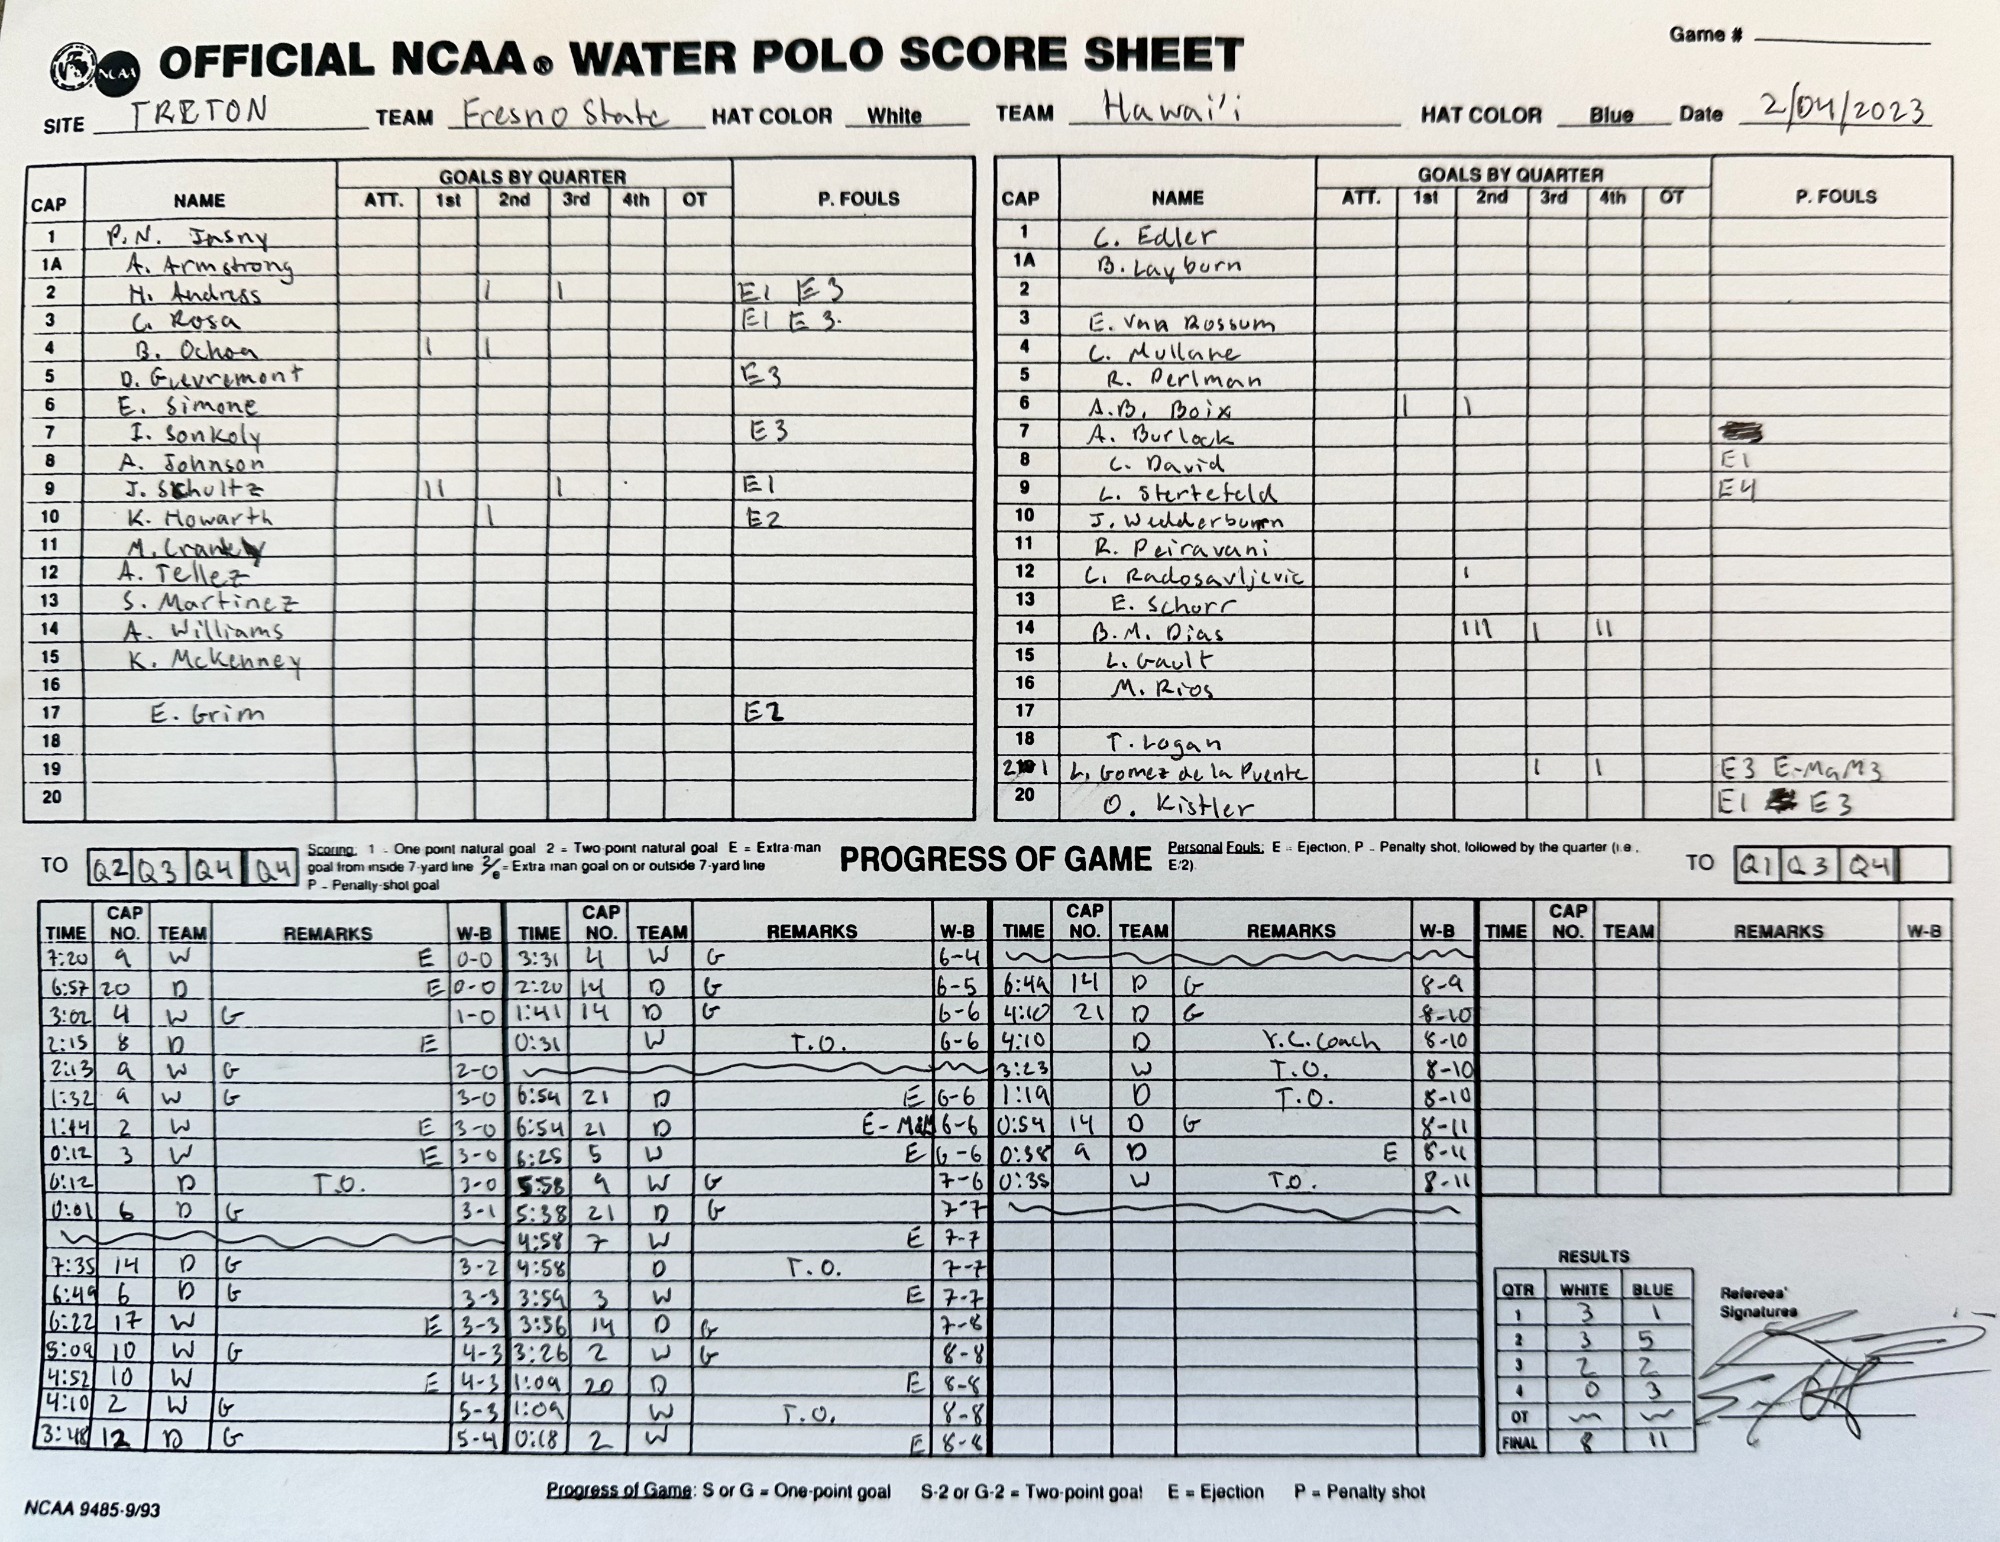 OFFICIAL NCAA® WATER POLO SCORE SHEET
Game #
NCAA
SITE TRITON TEAM Fresno State HAT COLOR White TEAM Hawai'i HAT COLOR Blue Date 2/04/2023
CAP NAME GOALS BY QUARTER P. FOULS
ATT. 1st 2nd 3rd 4th OT
1 P.N. Jasny
1A A. Armstrong
2 H. Andress | | E1 E3
3 C. Rosa E1 E3.
4 B. Ochoa | |
5 D. Guevremont E3
6 E. Simone
7 I. Sonkoly E3
8 A. Johnson
9 J. Schultz || | E1
10 K. Howarth | E2
11 M. Crankly
12 A. Tellez
13 S. Martinez
14 A. Williams
15 K. McKenney
16
17 E. Grim E2
18
19
20
CAP NAME GOALS BY QUARTER P. FOULS
ATT. 1st 2nd 3rd 4th OT
1 C. Edler
1A B. Layburn
2
3 E. Van Rossum
4 C. Mullane
5 R. Perlman
6 A.B. Boix | |
7 A. Burlock
8 C. David E1
9 L. Stertefeld E4
10 J. Wedderburn
11 R. Peiravani
12 C. Radosavljevic |
13 E. Schorr
14 B.M. Dias ||| | ||
15 L. Gault
16 M. Rios
17
18 T. Logan
21 L. Gomez de la Puente | | E3 E-MaM3
20 O. Kistler E1 E3
TO Q2 Q3 Q4 Q4
Scoring: 1 - One point natural goal 2 = Two-point natural goal E = Extra-man
goal from inside 7-yard line 2/e = Extra man goal on or outside 7-yard line
P - Penalty-shot goal
PROGRESS OF GAME
Personal Fouls: E = Ejection, P - Penalty shot, followed by the quarter (i.e.,
E/2).
TO Q1 Q3 Q4
TIME CAP NO. TEAM REMARKS W-B
7:20 9 W E 0-0
6:57 20 D E 0-0
3:02 4 W G 1-0
2:15 8 D E
2:13 9 W G 2-0
1:32 9 W G 3-0
1:14 2 W E 3-0
0:12 3 W E 3-0
0:12 D T.O. 3-0
0:01 6 D G 3-1
7:35 14 D G 3-2
6:49 6 D G 3-3
6:22 17 W E 3-3
5:09 10 W G 4-3
4:52 10 W E 4-3
4:10 2 W G 5-3
3:48 12 D G 5-4
TIME CAP NO. TEAM REMARKS W-B
3:31 4 W G 6-4
2:20 14 D G 6-5
1:41 14 D G 6-6
0:31 W T.O. 6-6
6:54 21 D E 6-6
6:54 21 D E-MaM 6-6
6:25 5 W E 6-6
5:58 9 W G 7-6
5:38 21 D G 7-7
4:58 7 W E 7-7
4:58 D T.O. 7-7
3:59 3 W E 7-7
3:56 14 D G 7-8
3:26 2 W G 8-8
1:09 20 D E 8-8
1:09 W T.O. 8-8
0:18 2 W E 8-8
TIME CAP NO. TEAM REMARKS W-B
6:49 14 D G 8-9
4:10 21 D G 8-10
4:10 D Y.C. Coach 8-10
3:23 W T.O. 8-10
1:19 D T.O. 8-10
0:54 14 D G 8-11
0:38 9 D E 8-11
0:35 W T.O. 8-11
TIME CAP NO. TEAM REMARKS W-B
RESULTS
QTR WHITE BLUE
1 3 1
2 3 5
3 2 2
4 0 3
OT
FINAL 8 11
Referees'
Signatures
Progress of Game: S or G = One-point goal S-2 or G-2 = Two-point goal E = Ejection P = Penalty shot
NCAA 9485-9/93